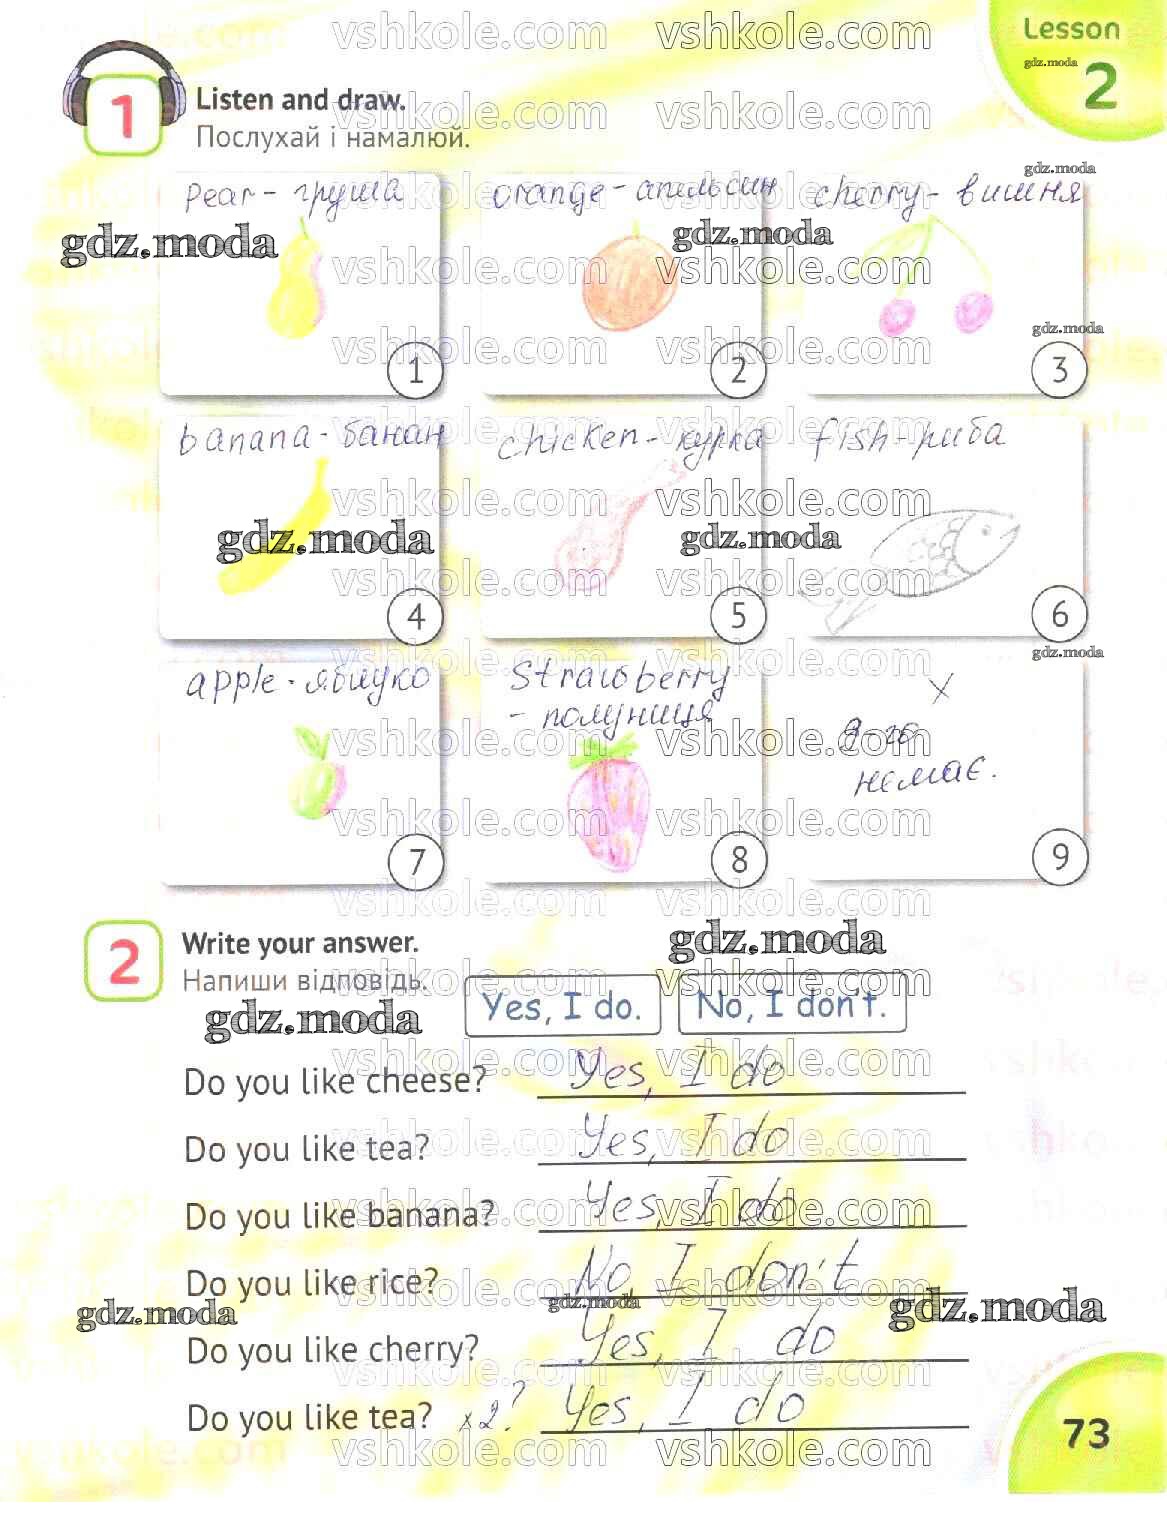 Lesson
2
1
Listen and draw.
Послухай і намалюй.
Pear - груша
1
orange - апельсин
2
cherry - вишня
3
banana - банан
4
chicken - курка
5
fish - риба
6
apple - яблуко
7
Strawberry
- полуниця
8
X
9-го
немає.
9
2
Write your answer.
Напиши відповідь.
Yes, I do.
No, I don't.
Do you like cheese? Yes, I do
Do you like tea? Yes, I do
Do you like banana? Yes, I do
Do you like rice? No, I don't
Do you like cherry? Yes, I do
Do you like tea? x2? Yes, I do
73
vshkole.com
gdz.moda